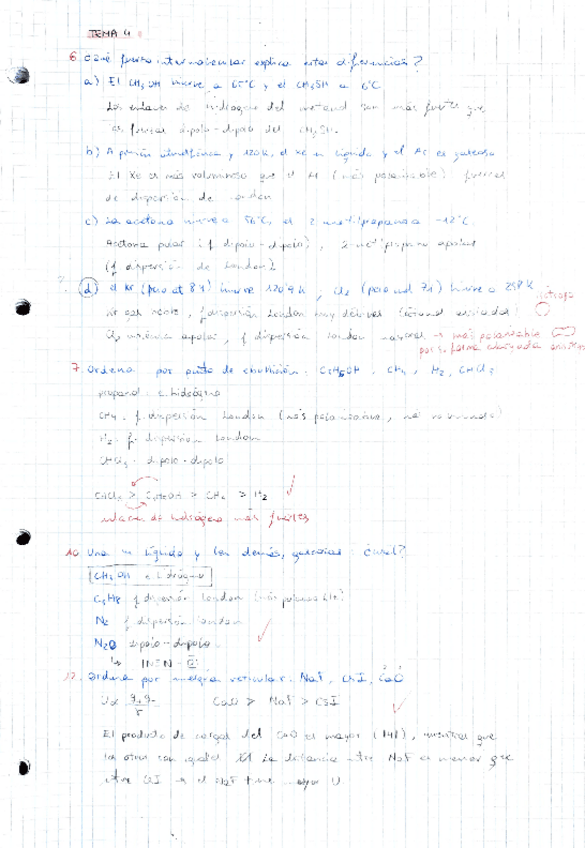 TEMA 4
6. ¿Qué fuerza intermolecular explica estas diferencias?
a) El CH3OH hierve a 65°C y el CH3SH a 6°C
Los enlaces de hidrógeno del metanol son más fuertes que
las fuerzas dipolo-dipolo del CH3SH.
b) A presión atmosférica y 120K, el Xe es líquido y el Ar es gaseoso
El Xe es más voluminoso que el Ar (más polarizable) fuerzas
de dispersión de London
c) La acetona hierve a 56°C, el 2-metilpropano a -12°C.
Acetona polar (f dipolo-dipolo), 2-metilpropano apolar
(f dispersión de London)
d) el Kr (peso at 84) hierve 120'9 K, Cl2 (peso mol 71) hierve a 238 K
Kr gas noble, f dispersión London muy débiles
Cl2 molécula apolar, f dispersión London → más polarizable
por s. forma alargada
7. Ordena por punto de ebullición: C3H5OH, CH4, H2, CHCl3
propanol: e. hidrógeno
CH4: f. dispersión London (más polarizable, más voluminoso)
H2: f. dispersión London
CHCl3: dipolo-dipolo
CHCl3 > C3H5OH > CH4 > H2
enlaces de hidrógeno más fuertes
10. Uno es líquido y los demás, gaseosos: ¿cuál?
CH3OH e. hidrógeno
C3H8 f dispersión London (más polarizable)
N2 f dispersión London
N2O dipolo-dipolo
12. Ordena por energía reticular: NaF, CsI, CaO
CaO > NaF > CsI
El producto de cargas del CaO es mayor (|4|), mientras que
los otros son igual. La distancia entre NaF es menor que
entre CsI el NaF tiene mayor U.